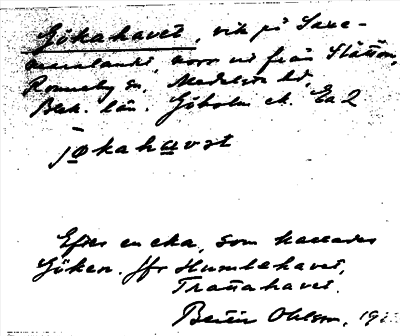 Gökahavet, vik på Saxe-
maralandet, norr ut från Slättön,
Ronneby sn, Medelsta hd,
Blek. län. Göholm ek. Ea 2
jøkahavet
Efter en eka, som kallades
Göken. Jfr Humlehavet,
Tranahavet.
Bertin Ohlsson, 19